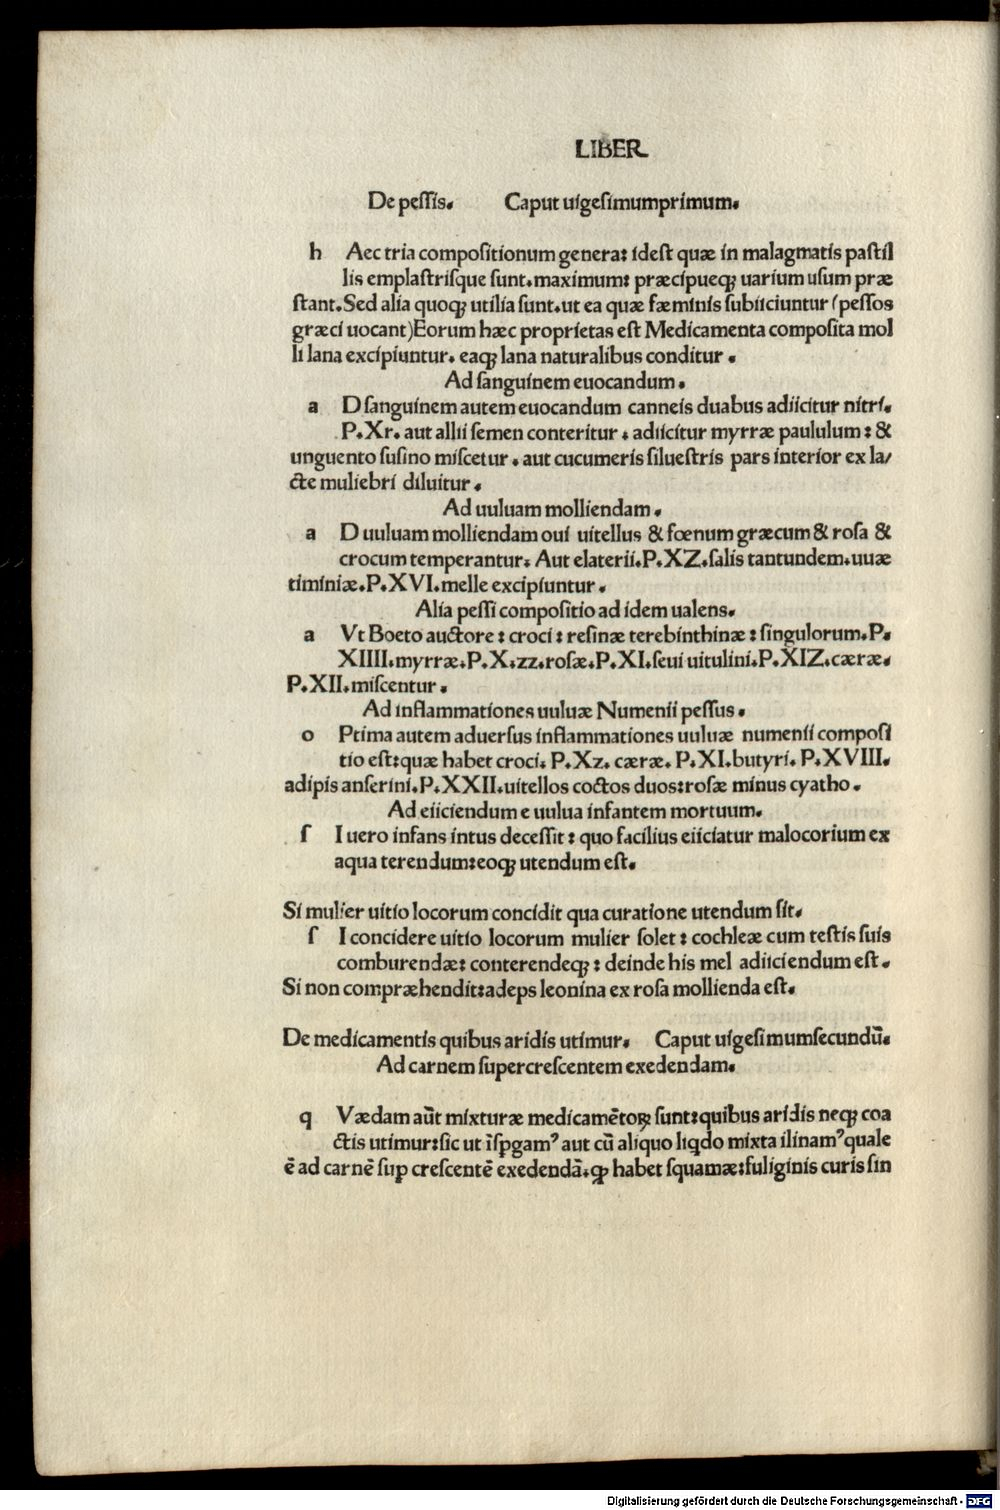 LIBER
De pessis. Caput uigesimumprimum.
h Aec tria compositionum genera: idest quæ in malagmatis pastil
lis emplastrisque sunt. maximum: præcipueqꝫ uarium usum præ
stant. Sed alia quoqꝫ utilia sunt. ut ea quæ fæminis subiiciuntur (pessos
græci uocant) Eorum hæc proprietas est Medicamenta composita mol
li lana excipiuntur. eaqꝫ lana naturalibus conditur.
Ad sanguinem euocandum.
a D sanguinem autem euocandum canneis duabus adiicitur nitri.
P. Xr. aut allii semen conteritur. adiicitur myrræ paululum: &
unguento susino miscetur. aut cucumeris siluestris pars interior ex la/
cte muliebri diluitur.
Ad uuluam molliendam.
a D uuluam molliendam oui uitellus & fœnum græcum & rosa &
crocum temperantur: Aut elaterii. P. XZ. salis tantundem. uuæ
timiniæ. P. XVI. melle excipiuntur.
Alia pessi compositio ad idem ualens.
a Vt Boeto auctore: croci: resinæ terebinthinæ: singulorum. P.
XIIII. myrræ. P. X. zz. rosæ. P. XI. seui uitulini. P. XIZ. cæræ.
P. XII. miscentur.
Ad inflammationes uuluæ Numenii pessus.
o Ptima autem aduersus inflammationes uuluæ numenii composi
tio est: quæ habet croci. P. Xz. cæræ. P. XI. butyri. P. XVIII.
adipis anserini. P. XXII. uitellos coctos duos: rosæ minus cyatho.
Ad eiiciendum e uulua infantem mortuum.
ſ I uero infans intus decessit: quo facilius eiiciatur malocorium ex
aqua terendum: eoqꝫ utendum est.
Si mulier uitio locorum concidit qua curatione utendum sit.
ſ I concidere uitio locorum mulier solet: cochleæ cum testis suis
comburendæ: conterendeqꝫ: deinde his mel adiiciendum est.
Si non compræhendit: adeps leonina ex rosa mollienda est.
De medicamentis quibus aridis utimur. Caput uigesimumsecundū.
Ad carnem supercrescentem exedendam.
q Vædam aūt mixturæ medicamētoꝝ sunt: quibus aridis neqꝫ coa
ctis utimur: sic ut īspgamꝰ aut cū aliquo liqdo mixta ilinamꝰ quale
ē ad carnē suꝑ crescentē exedendā. ꝙ habet squamæ: fuliginis curis sin
Digitalisierung gefördert durch die Deutsche Forschungsgemeinschaft - DFG